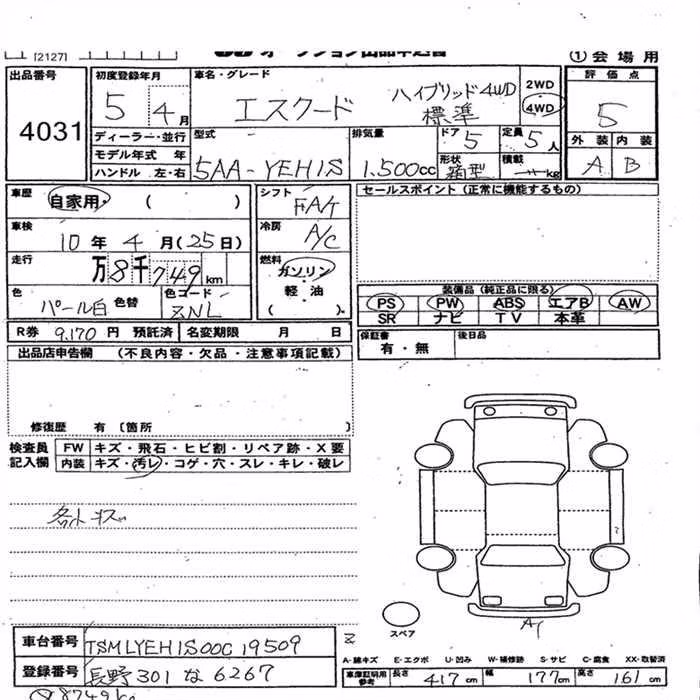 [2127]
①会場用
出品番号 4031
初度登録年月 5 4月
車名・グレード エスクード ハイブリッド4WD 標準
2WD
4WD
評価点 5
外装 内装
A B
ディーラー・並行
モデル年式 年
ハンドル 左・右
型式 5AA-YEH1S
排気量 1.500cc
ドア 5
定員 5人
形状 箱型
積載 kg
車歴 自家用・( )
車検 10年4月(25日)
走行 万8千749km
色 パール白 色替
色コード ZNL
シフト FAT
冷房 A/C
燃料 ガソリン・軽油
( )
セールスポイント (正常に機能するもの)
装備品 (純正品に限る)
PS PW ABS エアB AW
SR ナビ TV 本革
R券 9.170円 預託済 名変期限 月 日
保証書 有・無
後日品
出品店申告欄 (不良内容・欠品・注意事項記載)
修復歴 有 〔箇所 〕
検査員記入欄
FW キズ・飛石・ヒビ割・リペア跡・X要
内装 キズ・汚レ・コゲ・穴・スレ・キレ・破レ
スペア
A1
車台番号 TSMLYEH1S00C19509
登録番号 長野301な6267
A-線キズ E-エクボ U-凹み W-補修跡 S-サビ C-腐食 XX-取替済
車庫証明用参考 長さ 417cm 幅 177cm 高さ 161cm